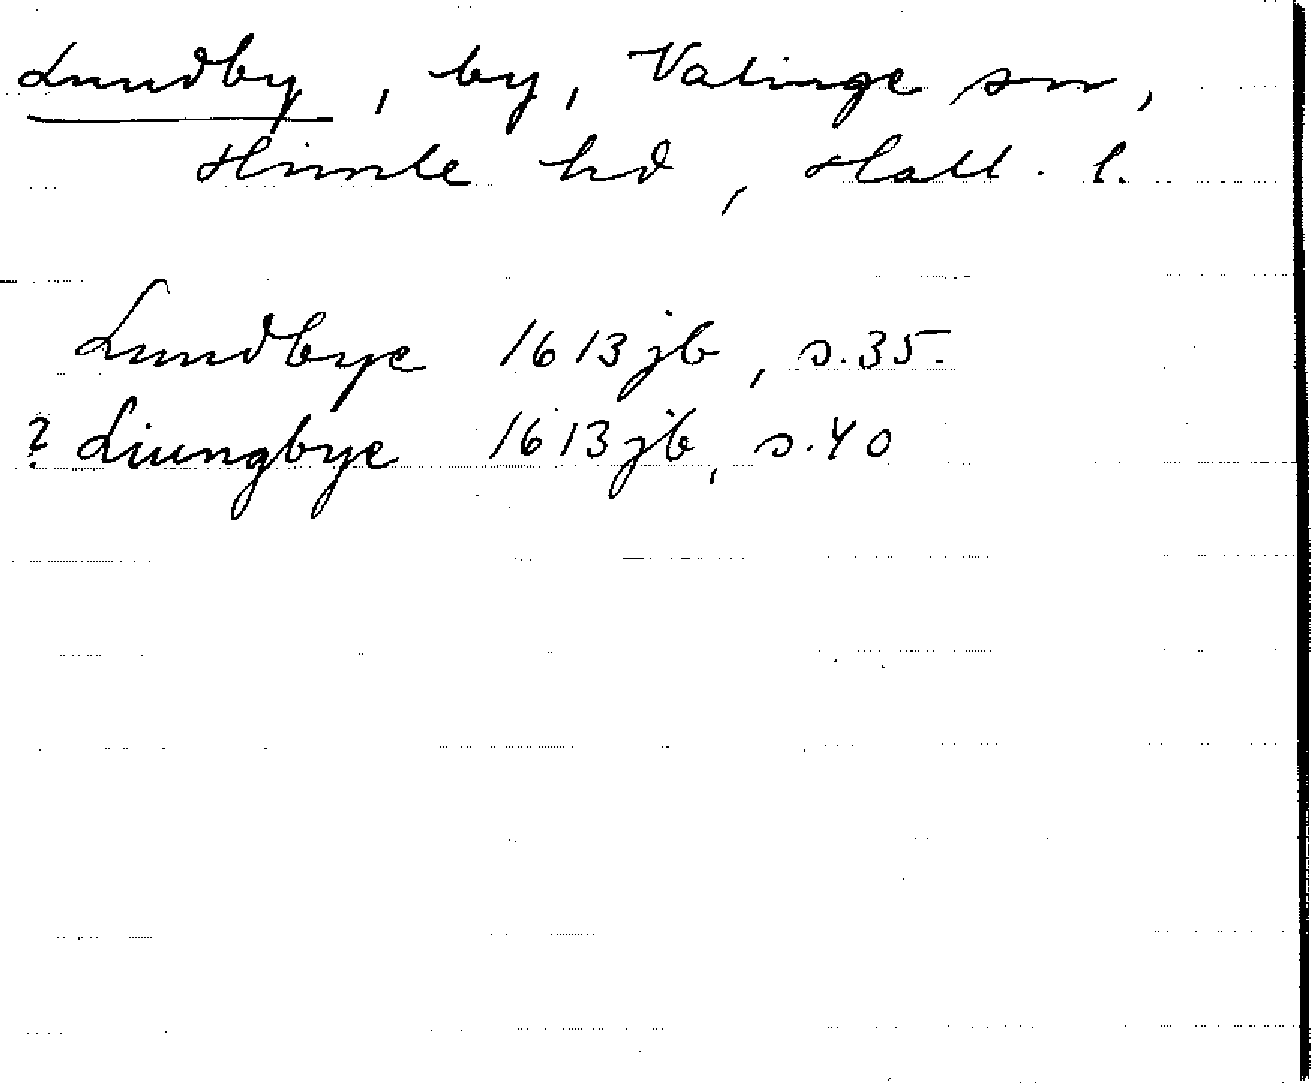 Lundby, by, Valinge sn,
Himle hd, Hall. l.
Lundbye 1613 jb, s. 35.
? Liungbye 1613 jb, s. 40